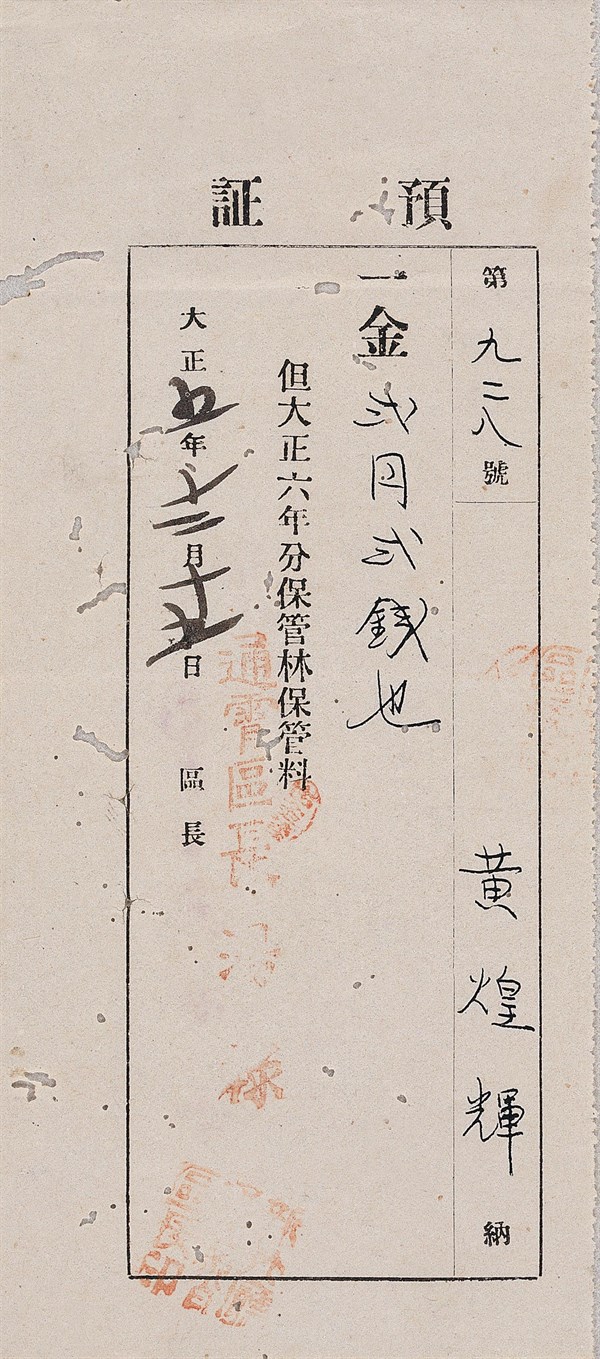 預証
第九二八號
黃煌輝納
一金弍円弍銭也
但大正六年分保管林保管料
通霄區長湯
大正五年十二月十九日 區長